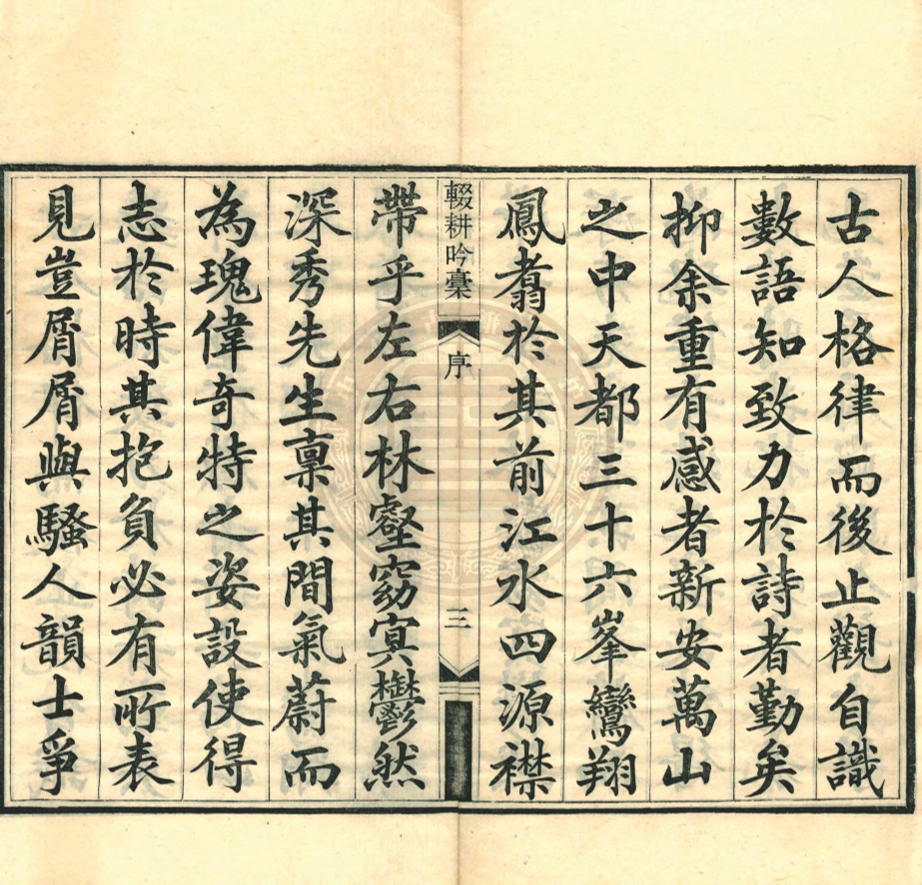 古人格律而後止觀自識
數語知致力於詩者勤矣
抑余重有感者新安萬山
之中天都三十六峯鸞翔
鳳翥於其前江水四源襟
輟耕吟稾 序 三
帶乎左右林壑窈冥鬱然
深秀先生稟其間氣蔚而
為瑰偉奇特之姿設使得
志於時其抱負必有所表
見豈屑屑與騷人韻士爭